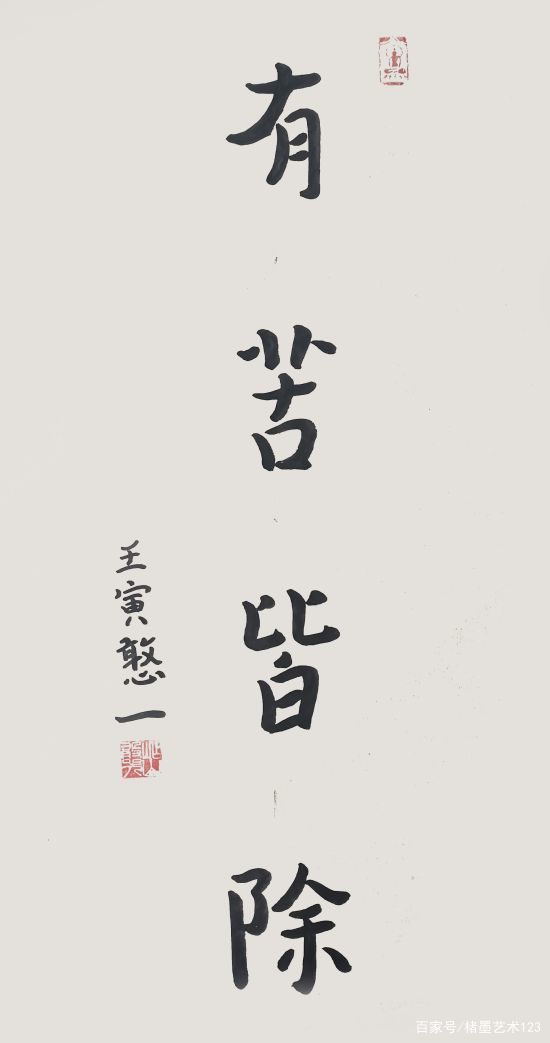 有苦皆除
壬寅憨一
百家号/楮墨艺术123